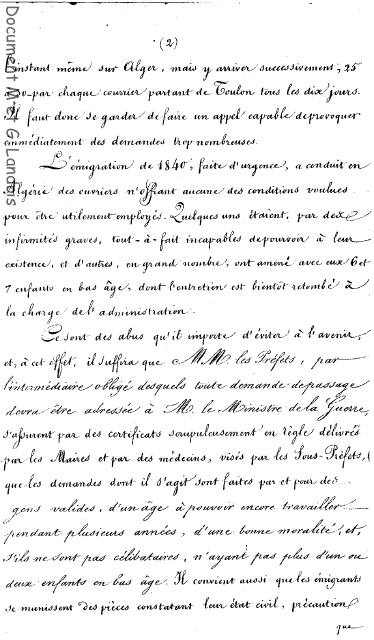 (2)
l'instant même sur Alger, mais y arriver successivement, 25
ou par chaque courrier partant de Toulon tous les dix jours.
Il faut donc se garder de faire un appel capable de provoquer
immédiatement des demandes trop nombreuses.
L'émigration de 1840, faite d'urgence, a conduit en
Algérie des ouvriers n'offrant aucune des conditions voulues
pour être utilement employés. Quelques uns étaient, par des
infirmités graves, tout-à-fait incapables de pourvoir à leur
existence, et d'autres, en grand nombre, ont amené avec eux 6 et
7 enfants en bas âge, dont l'entretien est bientôt retombé à
la charge de l'administration.
Ce sont des abus qu'il importe d'éviter à l'avenir,
et, à cet effet, il suffira que MM. les Préfets, par
l'intermédiaire obligé desquels toute demande de passage
devra être adressée à M. le Ministre de la Guerre,
s'assurent par des certificats scrupuleusement en règle délivrés
par les Maires et par des médecins, visés par les Sous-Préfets,
que les demandes dont il s'agit sont faites par et pour des
gens valides, d'un âge à pouvoir encore travailler
pendant plusieurs années, d'une bonne moralité, et,
s'ils ne sont pas célibataires, n'ayant pas plus d'un ou
deux enfants en bas âge. Il convient aussi que les émigrants
se munissent des pièces constatant leur état civil, précaution
que
Document M et G Landers